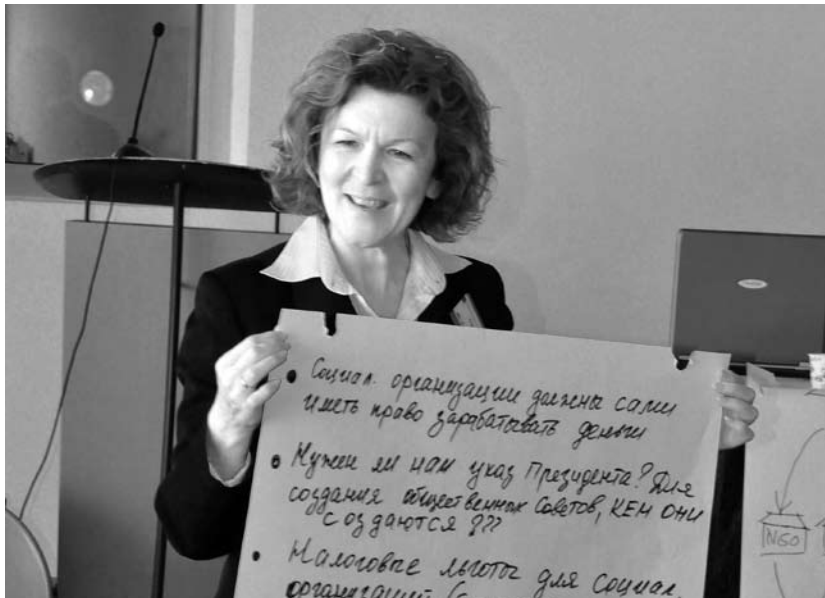 • Социал. организации должны сами
иметь право зарабатывать деньги
• Нужен ли нам указ Президента? Для
создания общественных Советов, КЕМ ОНИ
СОЗДАЮТСЯ???
• Налоговые льготы для социал.
организаций
NGO